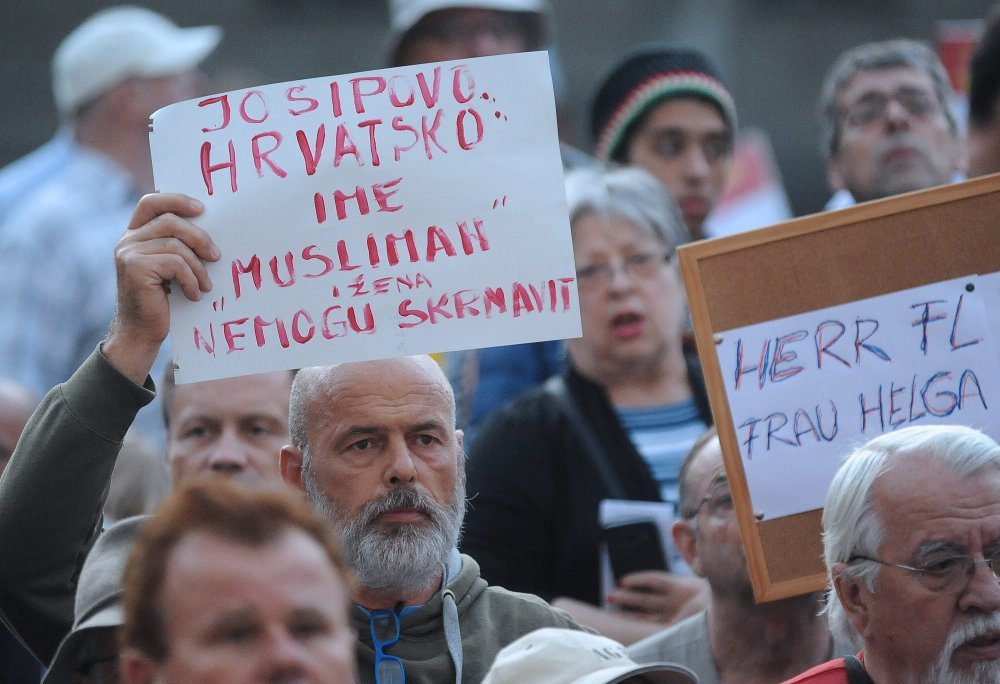 JOSIPOVO
HRVATSKO
IME
"MUSLIMAH"
I ŽENA
NEMOGU SKRNAVIT
HERR FL
FRAU HELGA